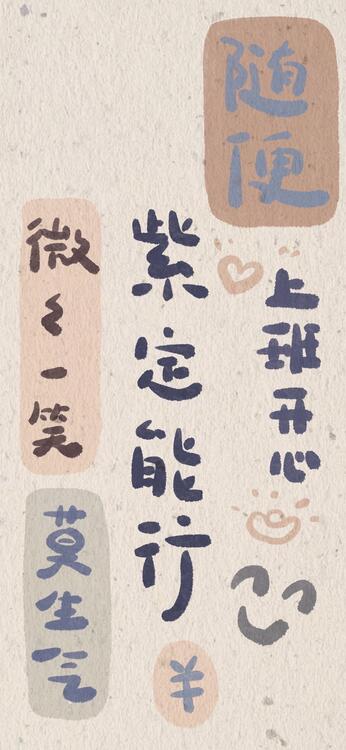 随便
上班开心
紫定能行
¥
微々一笑
莫生气